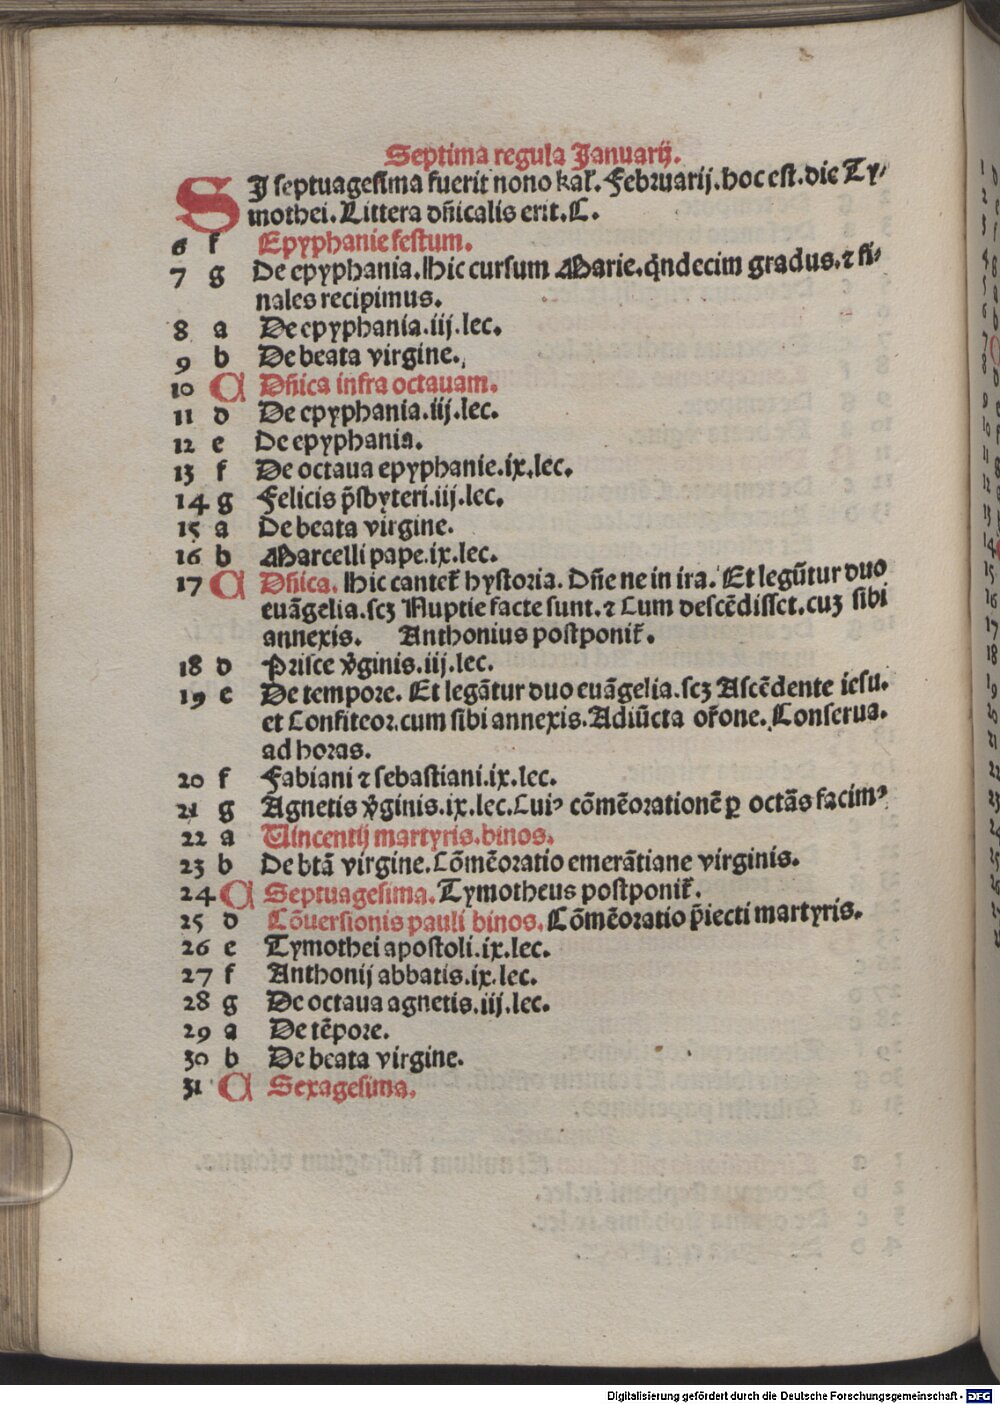 Septima regula Januarij.
SI septuagesima fuerit nono kał. Februarij. hoc est. die Ty-
mothei. Littera dn̄icalis erit. C.
6 f Epyphanie festum.
7 g De epyphania. Hic cursum Marie. q̄ndecim gradus. ⁊ fi-
nales recipimus.
8 a De epyphania. iij. lec.
9 b De beata virgine.
10 C Dn̄ica infra octauam.
11 d De epyphania. iij. lec.
12 e De epyphania.
13 f De octaua epyphanie. ix. lec.
14 g Felicis p̄sbyteri. iij. lec.
15 a De beata virgine.
16 b Marcelli pape. ix. lec.
17 C Dn̄ica. Hic cantet̄ hystoria. Dn̄e ne in ira. Et legūtur duo
euāgelia. scꝫ Nuptie facte sunt. ⁊ Cum descēdisset. cuꝫ sibi
annexis. Anthonius postponit̄.
18 d Prisce v̄ginis. iij. lec.
19 e De tempore. Et legātur duo euāgelia. scꝫ Ascēdente iesu.
et Confiteor. cum sibi annexis. Adiūcta or̄one. Conserua.
ad horas.
20 f Fabiani ⁊ sebastiani. ix. lec.
21 g Agnetis v̄ginis. ix. lec. Cuiꝰ cōmēorationē ꝑ octās facimꝰ
22 a Vincentij martyris. binos.
23 b De btā virgine. Cōmēoratio emerātiane virginis.
24 C Septuagesima. Tymotheus postponit̄.
25 d Cōuersionis pauli binos. Cōmēoratio p̄iecti martyris.
26 e Tymothei apostoli. ix. lec.
27 f Anthonij abbatis. ix. lec.
28 g De octaua agnetis. iij. lec.
29 a De tēpore.
30 b De beata virgine.
31 C Sexagesima.
Digitalisierung gefördert durch die Deutsche Forschungsgemeinschaft - DFG